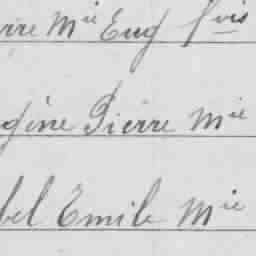 rre Mie Eug fois
gène Pierre Mie
bel Emile Mie